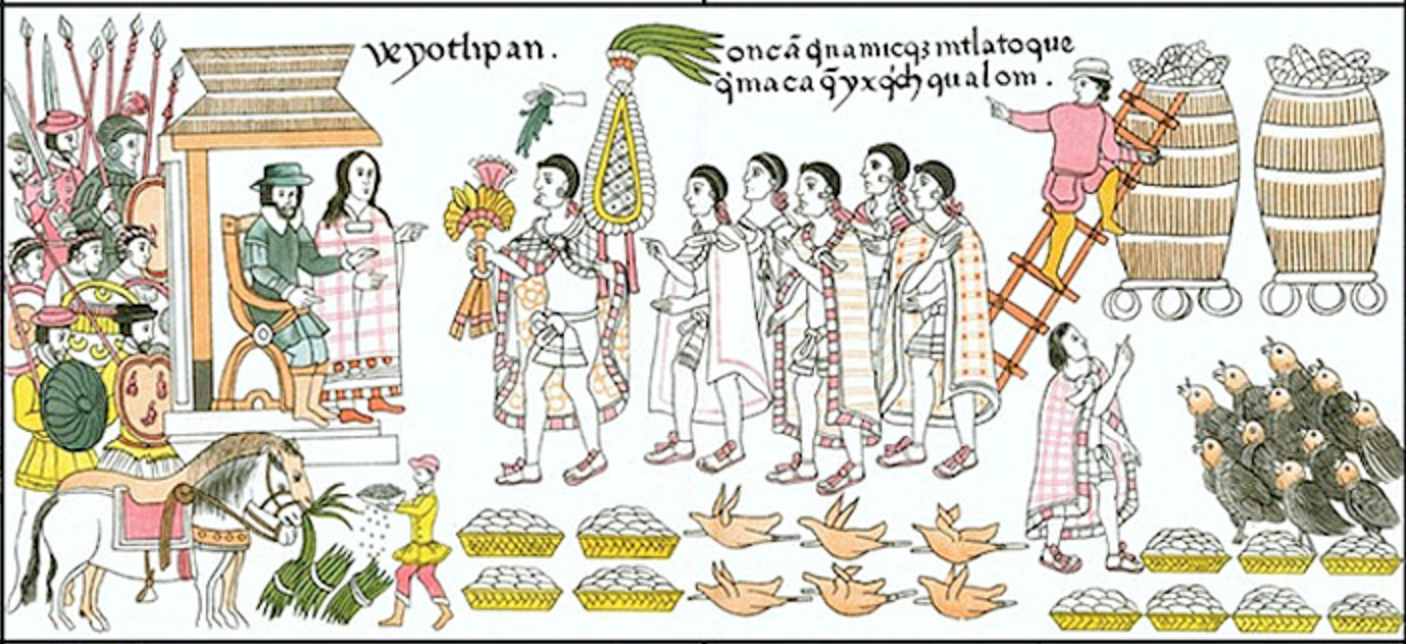 veyotlipan.
oncã q̃namicqȝ intlatoque
q̃maca q̃yxq̃ch qualom.